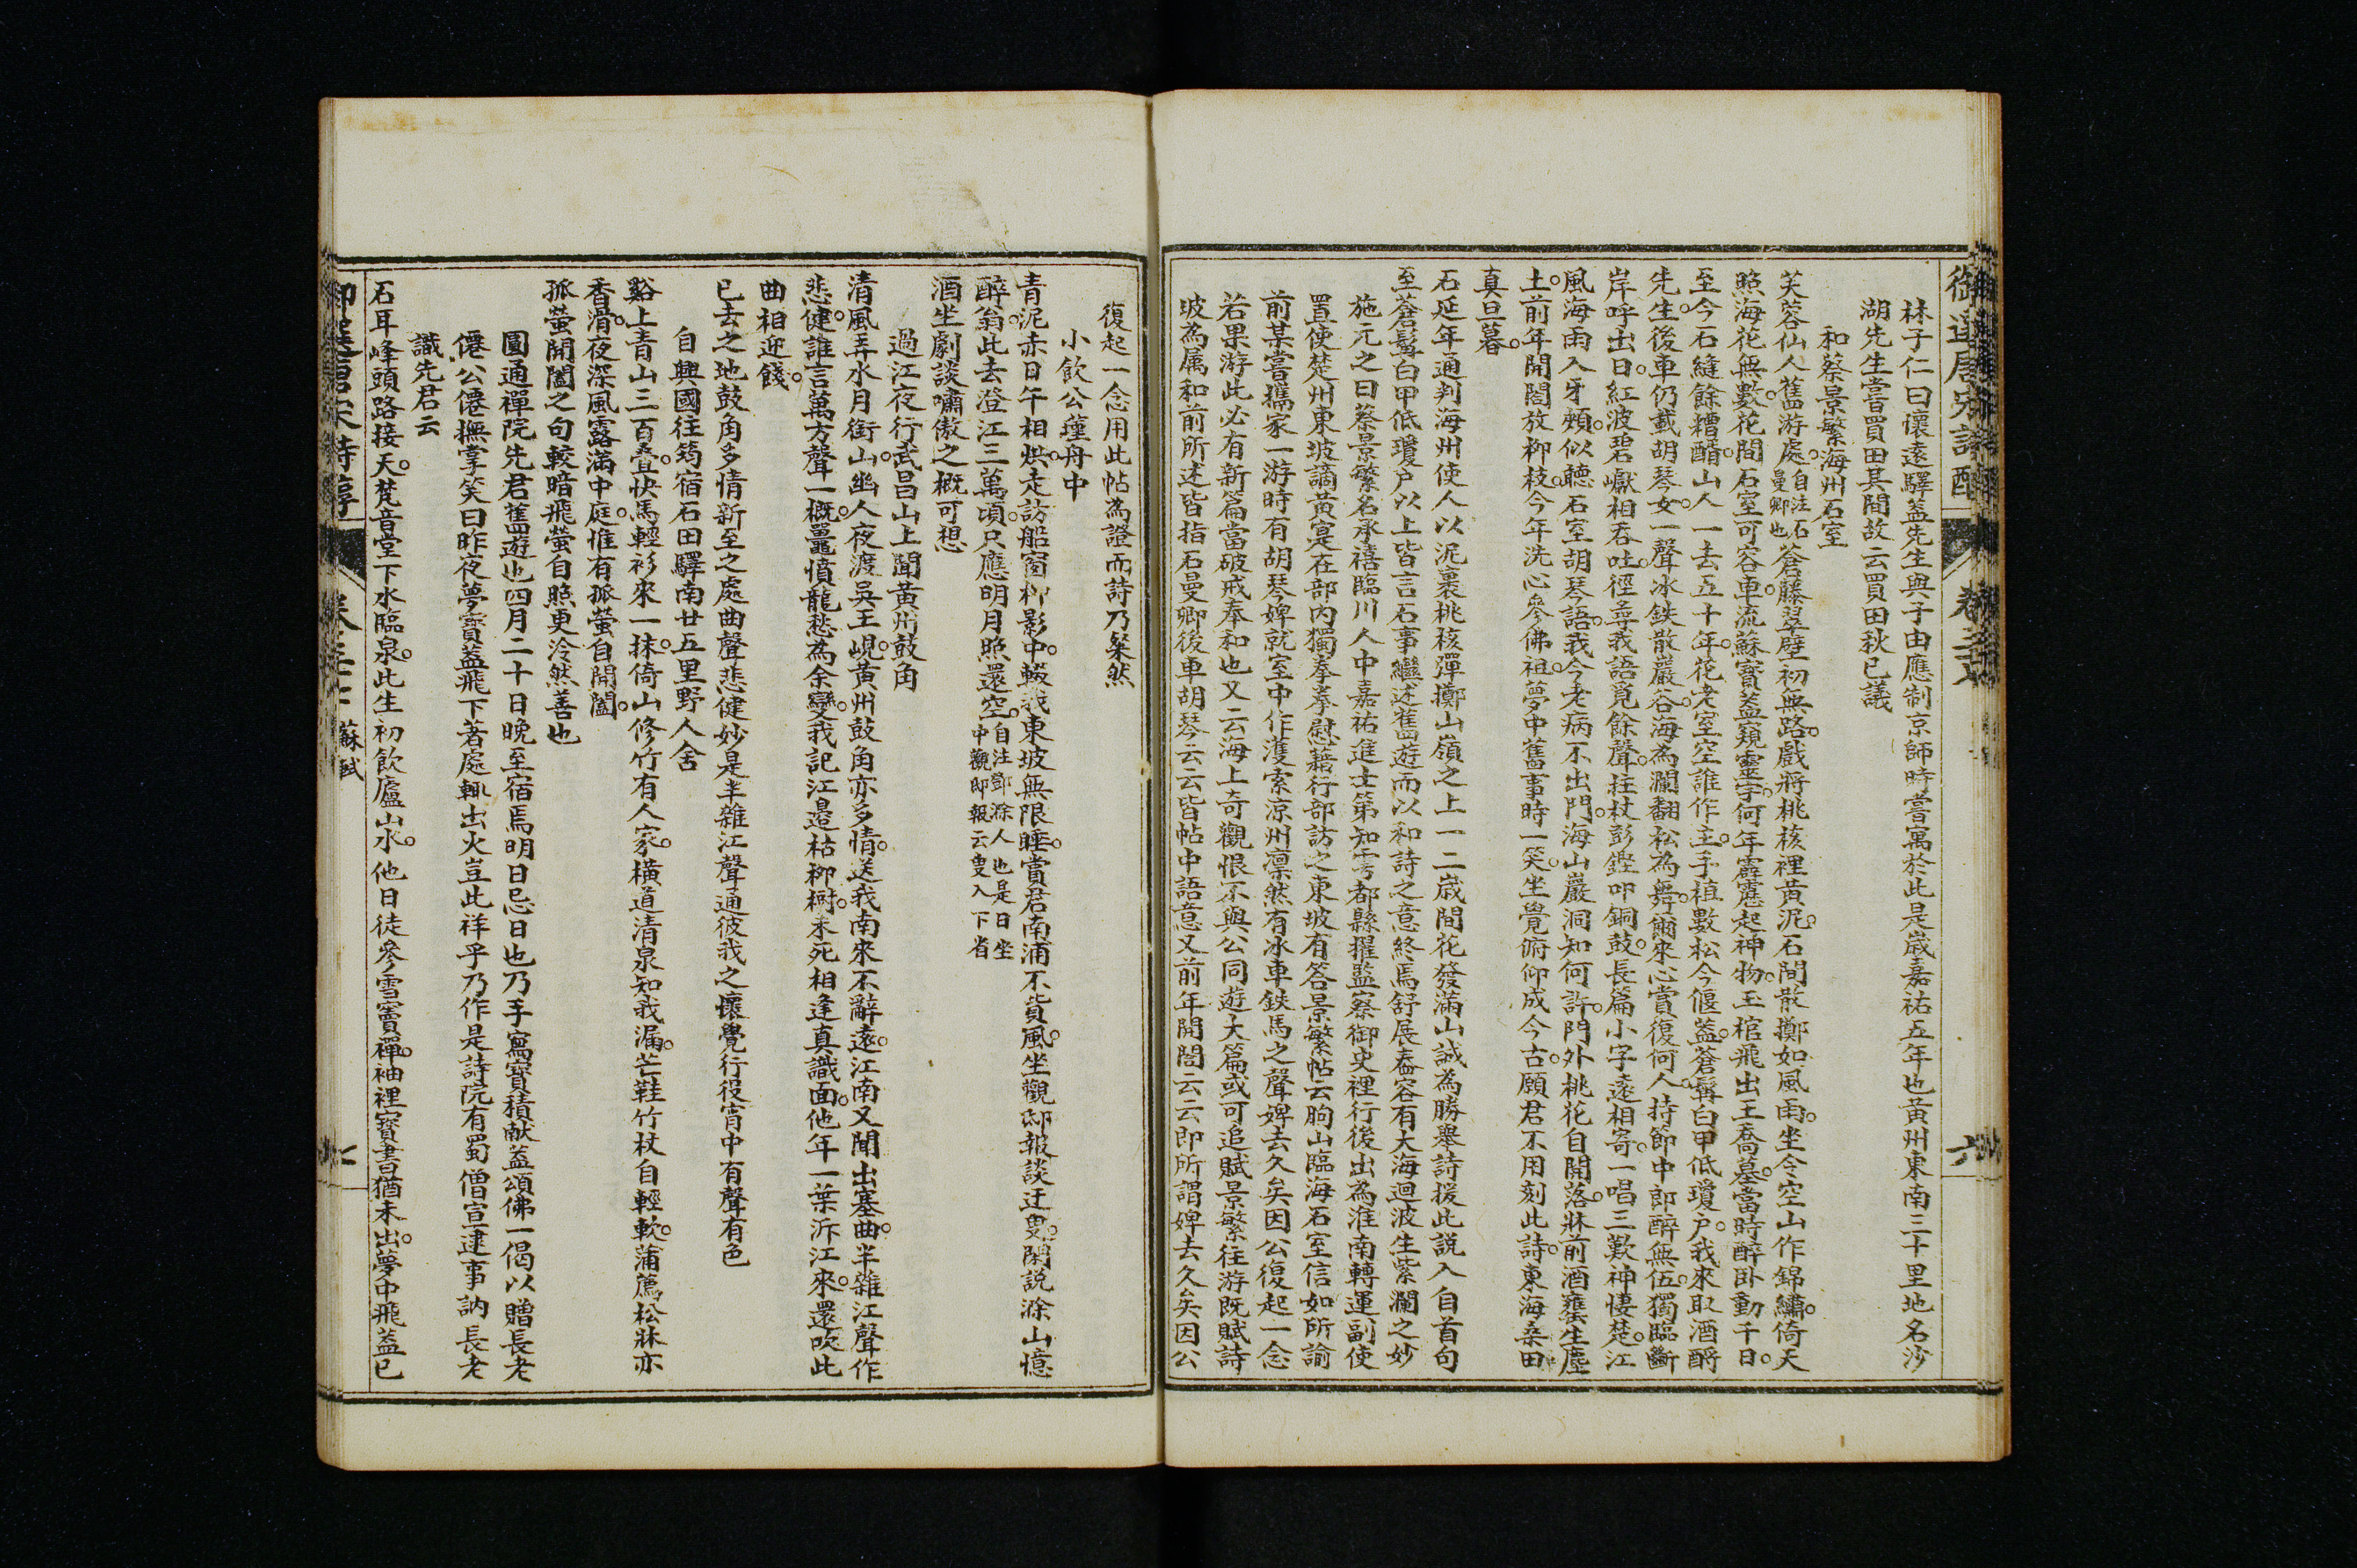 御選唐宋詩醇
卷三十七
六
林子仁曰懷遠驛葢先生與子由應制京師時嘗寓於此是歲嘉祐五年也黃州東南三十里地名沙
湖先生嘗買田其間故云買田秋已議
和蔡景繁海州石室
芙蓉仙人舊游處自注石曼卿也蒼藤翠壁初無路戲將桃核裡黃泥石間散擲如風雨坐令空山作錦繡倚天
照海花無數花間石室可容車流蘇寶葢窺靈宇何年霹靂起神物玉棺飛出王喬墓當時醉卧動千日
至今石縫餘糟醑山人一去五十年花老室空誰作主手植數松今偃葢蒼髯白甲低瓊户我來取酒酹
先生後車仍載胡琴女一聲冰鉄散巖谷海為瀾翻松為舞爾來心賞復何人持節中郎醉無伍獨臨斷
岸呼出日紅波碧巘相吞吐徑尋我語覓餘聲拄杖彭鏗叩銅鼓長篇小字遠相寄一唱三歎神悽楚江
風海雨入牙頰似聽石室胡琴語我今老病不出門海山巖洞知何許門外桃花自開落牀前酒甕生塵
土前年開閤放柳枝今年洗心參佛祖夢中舊事時一笑坐覺俯仰成今古願君不用刻此詩東海桑田
真旦暮
石延年通判海州使人以泥裹桃核彈擲山嶺之上一二歲間花發滿山誠為勝舉詩援此說入自首句
至蒼髯白甲低瓊户以上皆言石事繼述舊遊而以和詩之意終焉舒展春容有大海迴波生紫瀾之妙
施元之曰蔡景繁名承禧臨川人中嘉祐進士第知雩都縣擢監察御史裡行後出為淮南轉運副使
置使楚州東坡謫黃寔在部內獨拳拳慰藉行部訪之東坡有答景繁帖云朐山臨海石室信如所諭
前某嘗攜家一游時有胡琴婢就室中作濩索凉州凜然有冰車鉄馬之聲婢去久矣因公復起一念
若果游此必有新篇當破戒奉和也又云海上奇觀恨不與公同遊大篇或可追賦景繁往游既賦詩
坡為属和前所述皆指石曼卿後車胡琴云云皆帖中語意又前年開閤云云即所謂婢去久矣因公
復起一念用此帖為證而詩乃粲然
小飲公瑾舟中
青泥赤日午相烘走訪船窗柳影中輟我東坡無限睡賞君南浦不貲風坐觀邸報談迂叟閑説滁山憶
醉翁此去澄江三萬頃只應明月照還空自注鄧滁人也是日坐中觀邸報云叟入下省
酒坐劇談嘯傲之概可想
過江夜行武昌山上聞黃州鼓角
清風弄水月銜山幽人夜渡吳王峴黃州鼓角亦多情送我南來不辭遠江南又聞出塞曲半雜江聲作
悲健誰言萬方聲一概鼉憤龍愁為余變我記江邉枯柳樹未死相逢真識面他年一葉泝江來還吹此
曲相迎餞
已去之地鼓角多情新至之處曲聲悲健妙是半雜江聲通彼我之懷覺行役宵中有聲有色
自興國往筠宿石田驛南廿五里野人舍
谿上青山三百疊快馬輕衫來一抹倚山修竹有人家橫道清泉知我渴芒鞋竹杖自輕軟蒲薦松牀亦
香滑夜深風露滿中庭惟有孤螢自開闔
孤螢開闔之句較暗飛螢自照更泠然善也
圓通禪院先君舊遊也四月二十日晚至宿焉明日忌日也乃手寫寶積献葢頌佛一偈以贈長老
僊公僊撫掌笑曰昨夜夢寶葢飛下著處輒出火豈此祥乎乃作是詩院有蜀僧宣逮事訥長老
識先君云
石耳峰頭路接天梵音堂下水臨泉此生初飲廬山水他日徒參雪竇禪袖裡寶書猶未出夢中飛葢已
蘇軾
七